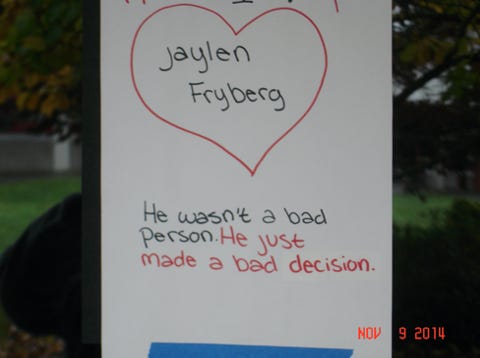 Jaylen
Fryberg
He wasn't a bad
person. He just
made a bad decision.
NOV 9 2014